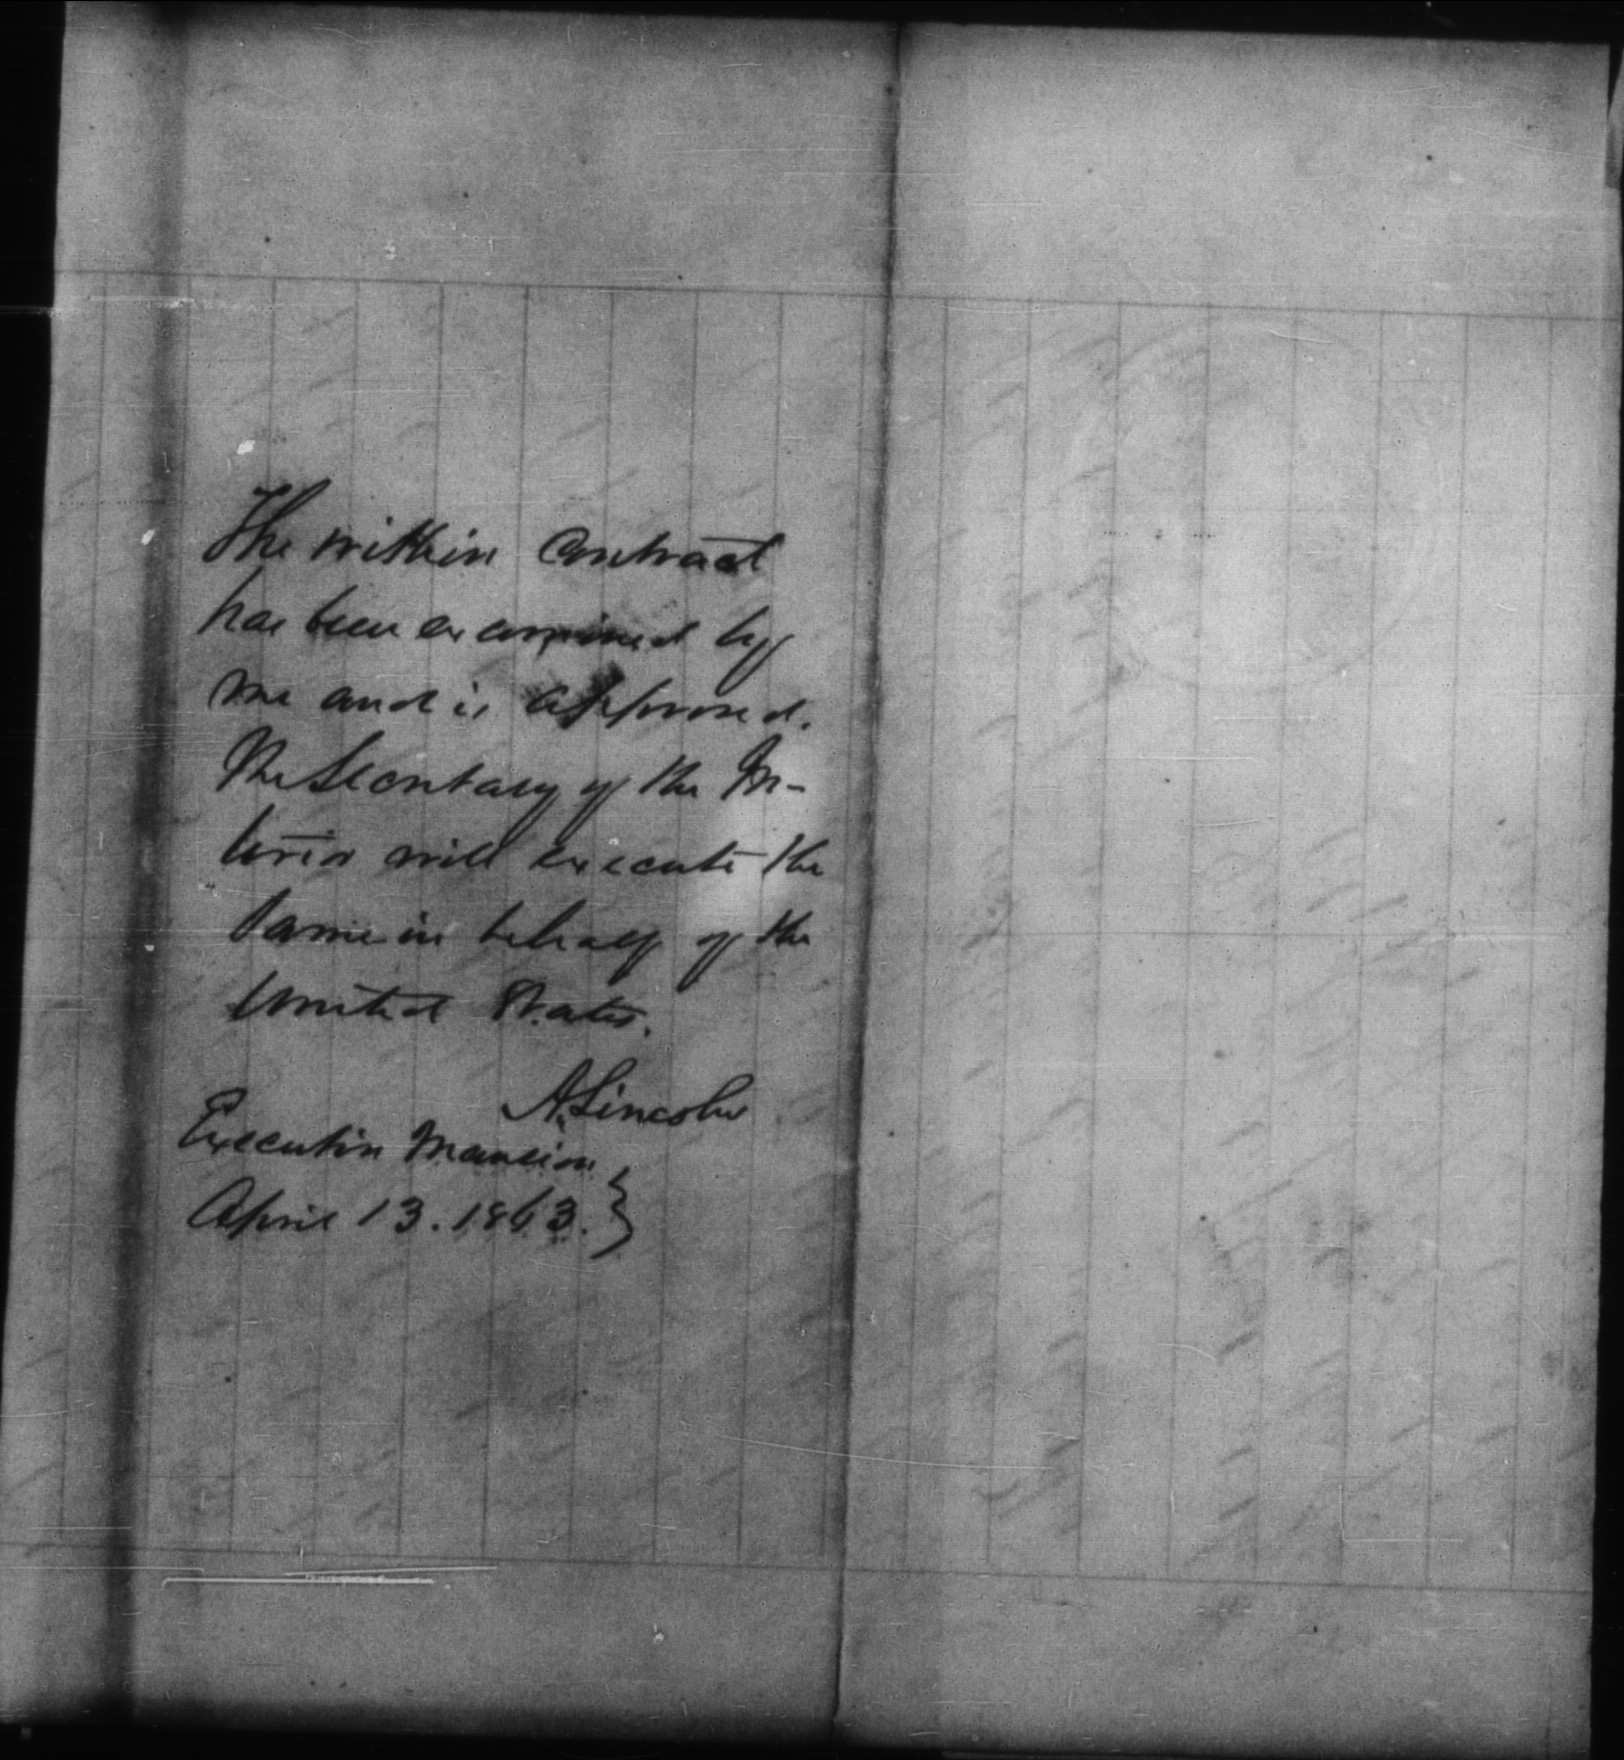 The within Contract
has been examined by
me and is approved.
The Secretary of the In-
terior will execute the
same in behalf of the
United States.
A. Lincoln
Executive Mansion
April 13. 1863.